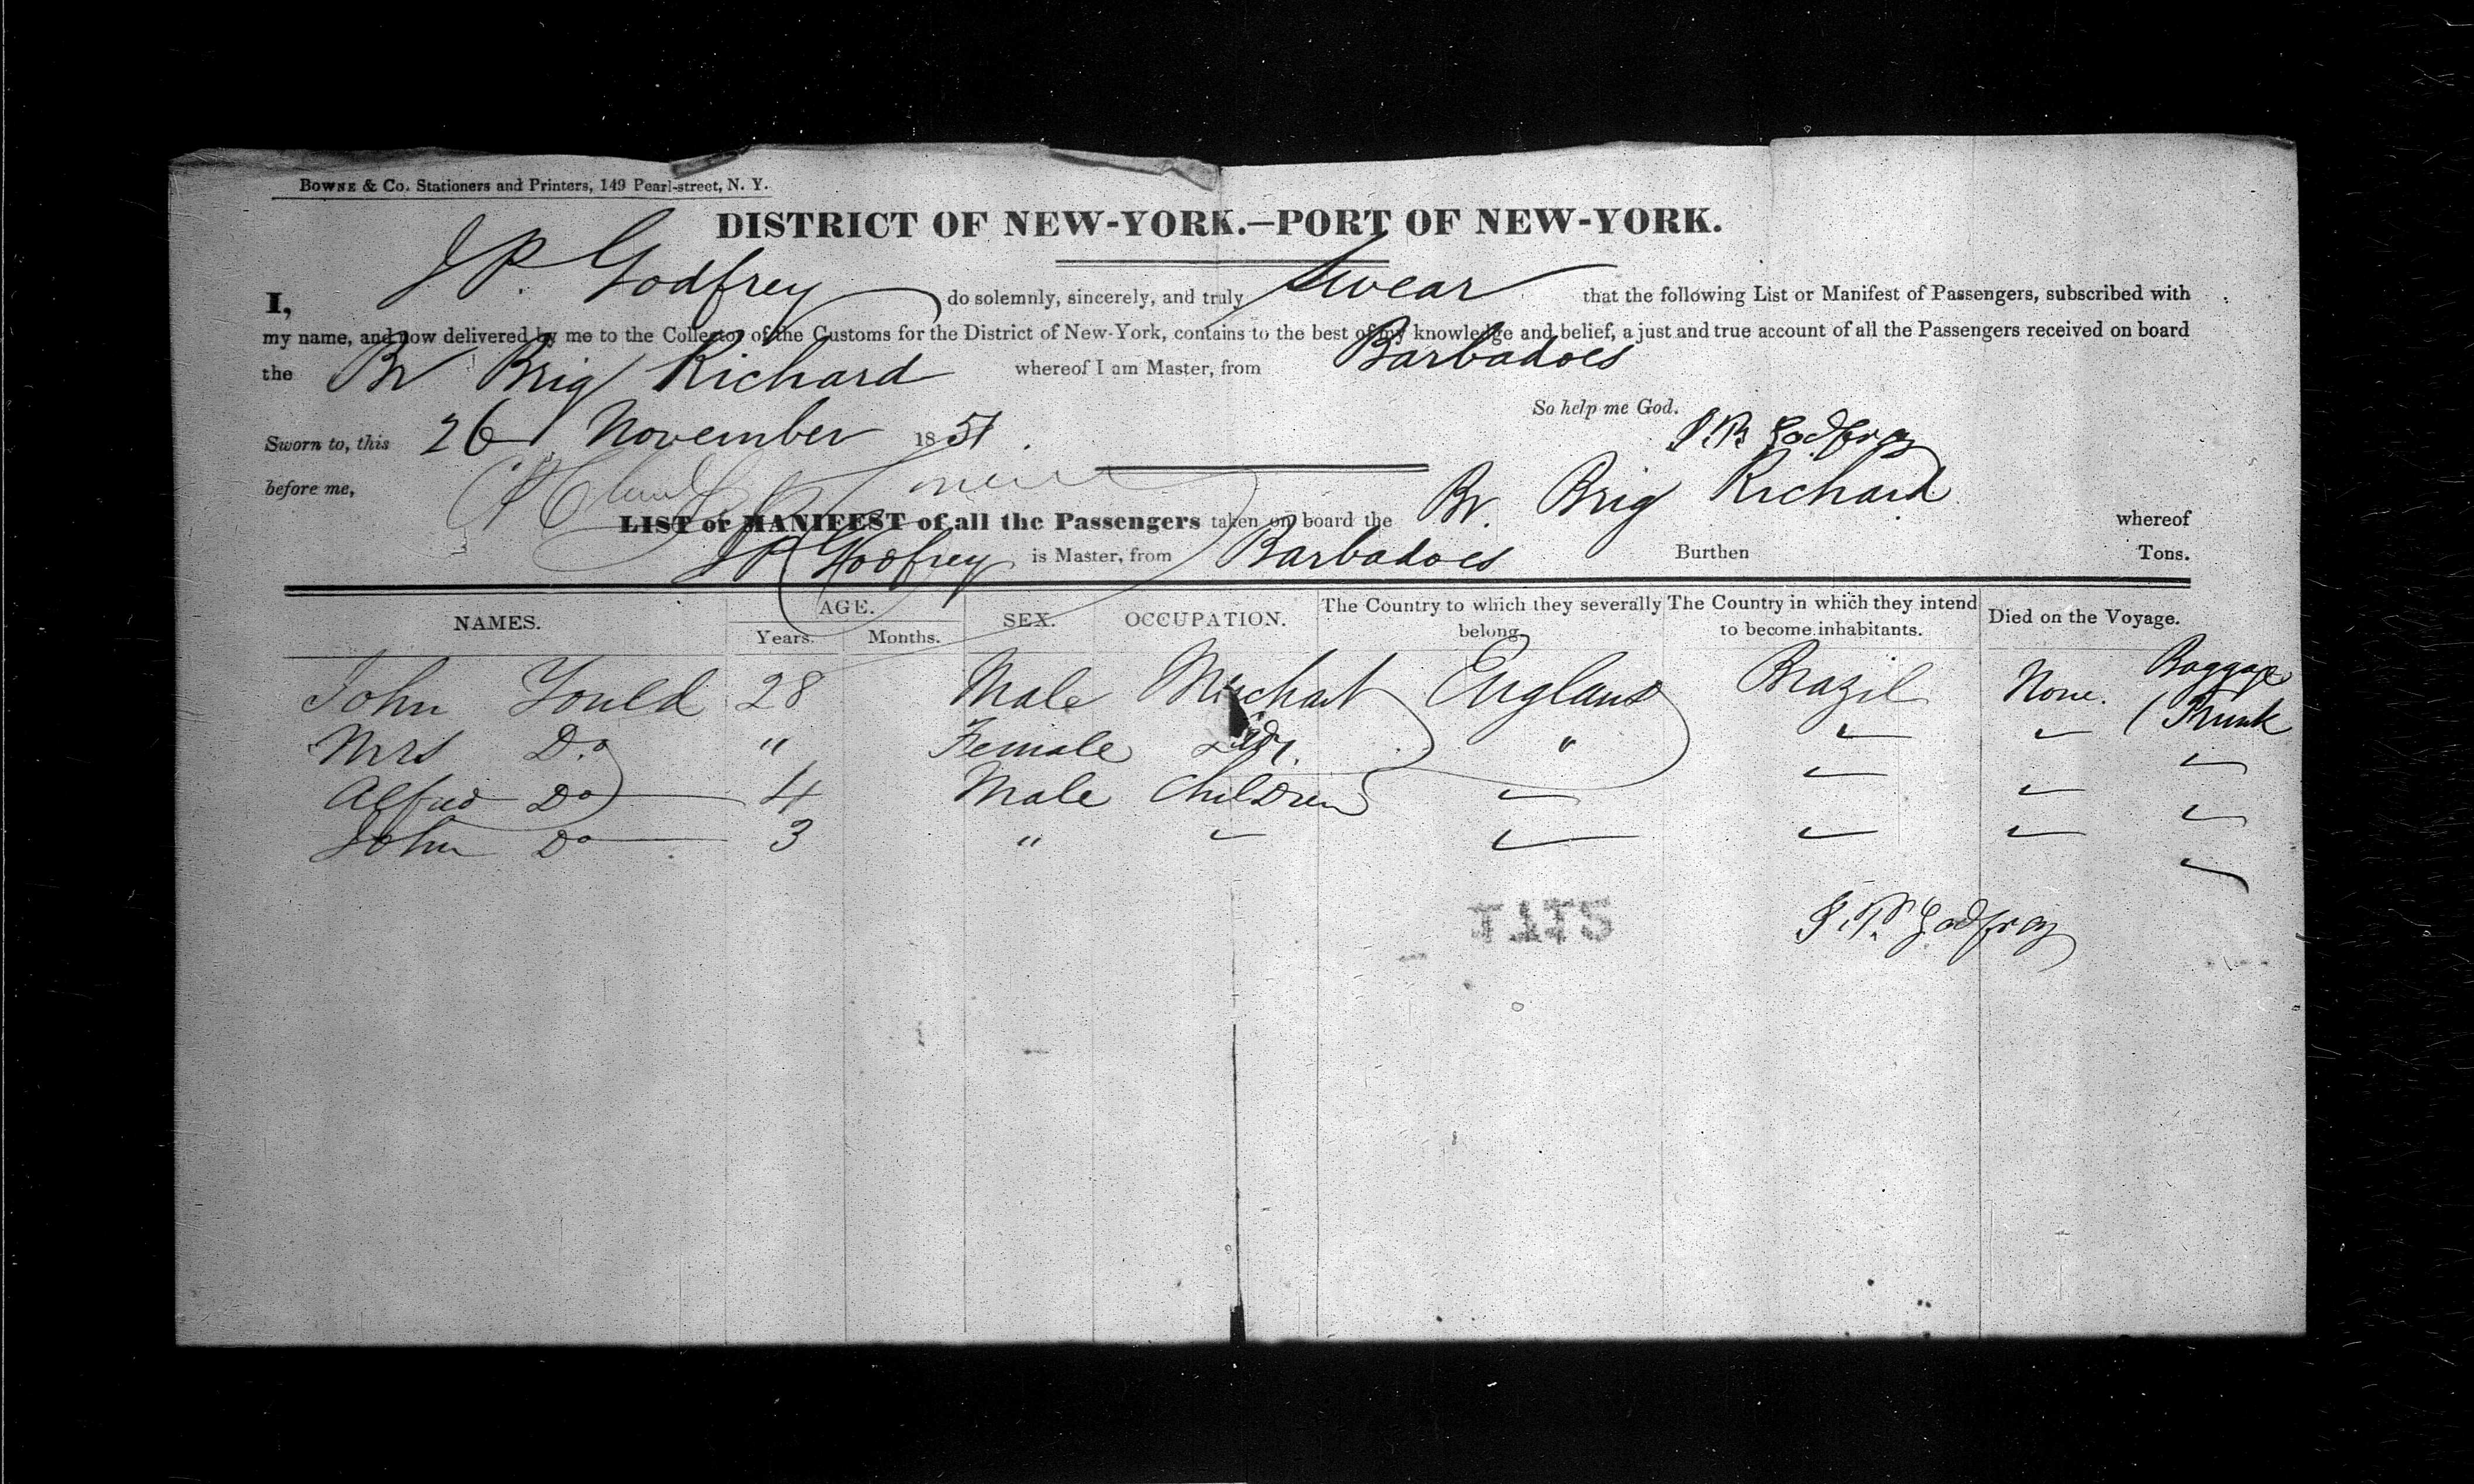 BOWNE & Co. Stationers and Printers, 149 Pearl-street, N. Y.
DISTRICT OF NEW-YORK.—PORT OF NEW-YORK.
I, J P. Godfrey do solemnly, sincerely, and truly Swear that the following List or Manifest of Passengers, subscribed with
my name, and now delivered by me to the Collector of the Customs for the District of New-York, contains to the best of my knowledge and belief, a just and true account of all the Passengers received on board
the Br Brig Richard whereof I am Master, from Barbadoes
So help me God.
Sworn to, this 26 November 1851. J. P. Godfrey
before me,
LIST or MANIFEST of all the Passengers taken on board the Br. Brig Richard whereof
J P Godfrey is Master, from Barbadoes Burthen Tons.
NAMES. AGE. SEX. OCCUPATION. The Country to which they severally belong. The Country in which they intend to become inhabitants. Died on the Voyage.
Years. Months.
Baggage
John Gould 28 Male Merchat England Brazil None. 1 Trunk
Mrs Do " Female "
Alfred Do 4 Male Children
John Do 3 "
J. P. Godfrey